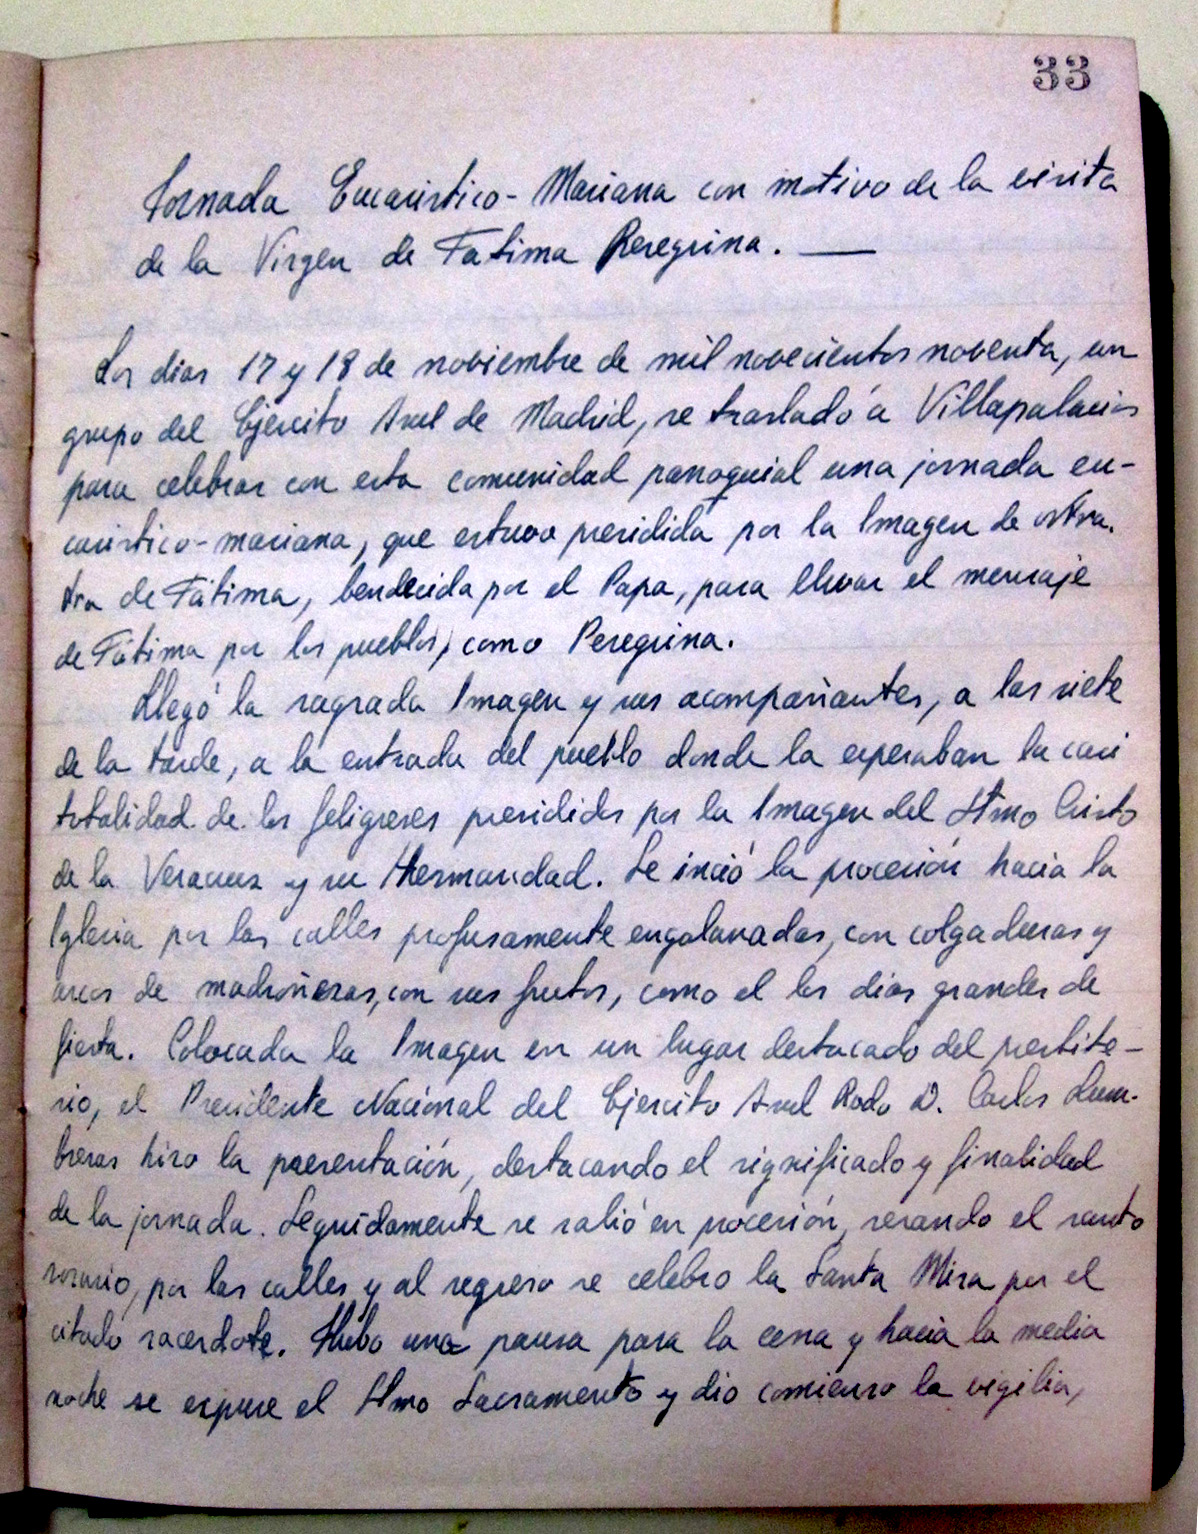 33
Jornada Eucarístico-Mariana con motivo de la visita
de la Virgen de Fatima Peregrina. —
Los dias 17 y 18 de noviembre de mil novecientos noventa, un
grupo del Ejército Azul de Madrid, se trasladó a Villapalacios
para celebrar con esta comunidad parroquial una jornada eu-
carístico-mariana, que estuvo presidida por la Imagen de
tra de Fátima, bendecida por el Papa, para llevar el mensaje
de Fátima por los pueblos, como Peregrina.
Llegó la sagrada Imagen y sus acompañantes, a las siete
de la tarde, a la entrada del pueblo donde la esperaban la casi
totalidad de los feligreses presididos por la Imagen del Stmo Cristo
de la Veracruz y su Hermandad. Se inció la procesión hacia la
Iglesia por las calles profusamente engalanadas, con colgaduras y
arcos de madroñeras, con sus frutos, como el los dias grandes de
fiesta. Colocada la Imagen en un lugar destacado del presbite-
rio, el Presidente Nacional del Ejercito Azul Rvdo D. Carlos Lum-
breras hizo la presentación, destacando el significado y finalidad
de la jornada. Seguidamente se salió en procesión, rezando el santo
rosario, por las calles y al regreso se celebro la Santa Misa por el
citado sacerdote. Hubo una pausa para la cena y hacia la media
noche se expuse el Stmo Sacramento y dio comienzo la vigilia,